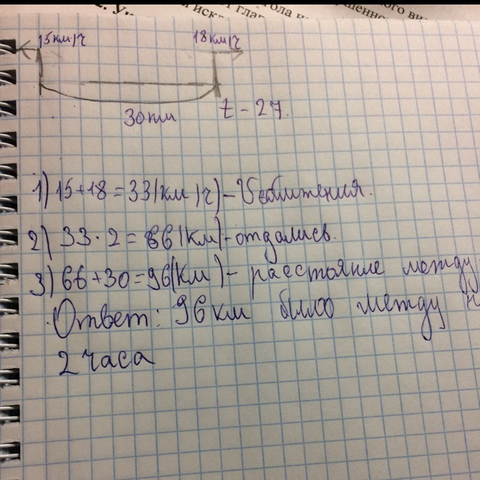 15км/ч 18км/ч
30км t - 2ч.
1) 15+18=33(км/ч) - Vсближения.
2) 33·2=66(км) - отдались.
3) 66+30=96(км) - расстояние между
Ответ: 96 км было между
2 часа